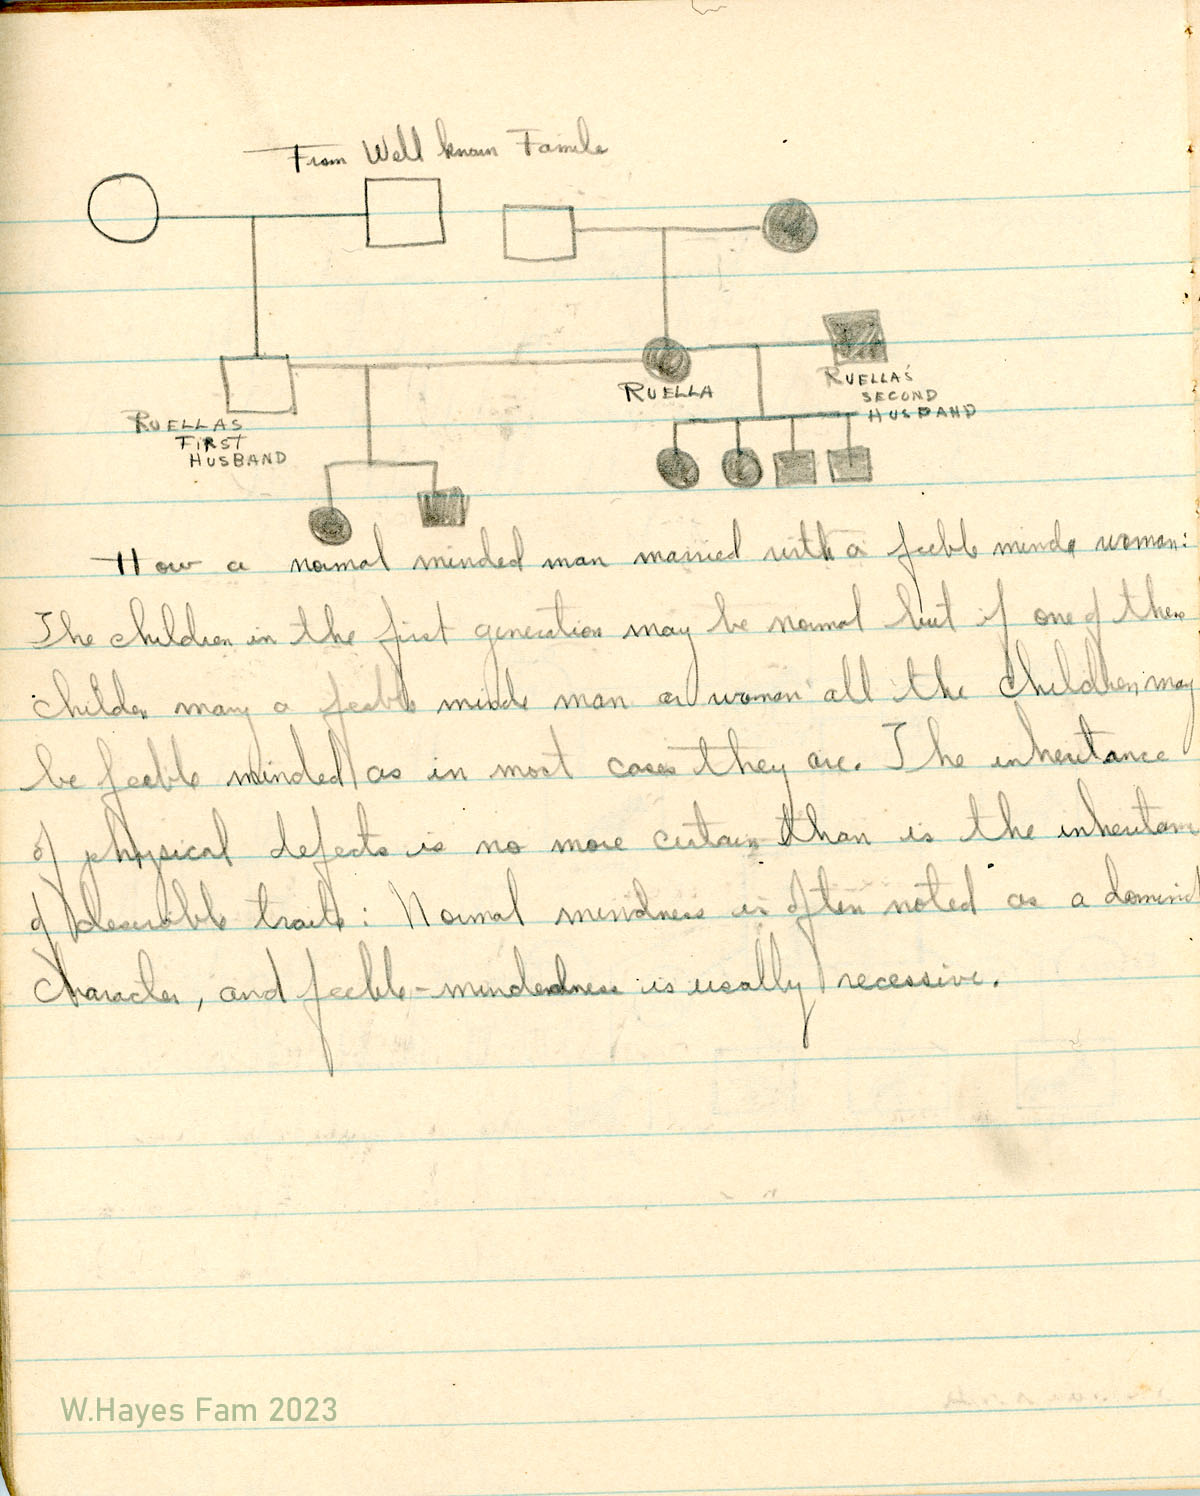 From Well known Famile
RUELLA
RUELLA'S
SECOND
HUSBAND
RUELLAS
FIRST
HUSBAND
How a normal minded man married with a feeble minde woman:
The children in the first generation may be normal but if one of thes
childen mary a feeble minde man or woman all the children may
be feeble minded as in most cases they are. The inheritance
of physical defects is no more certain than is the inheritanc
of desirable traits: Normal mindness is often noted as a domind
character, and feeble-mindedness is usally recessive.
W.Hayes Fam 2023